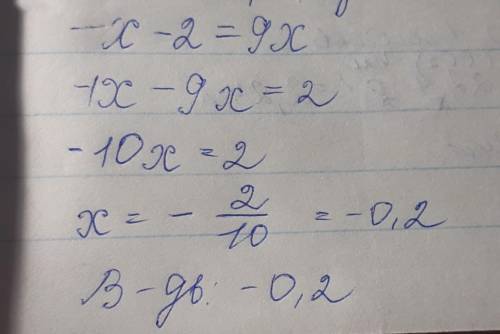 -x - 2 = 9x
-1x - 9x = 2
-10x = 2
x = - 2/10 = -0,2
В-дь: -0,2